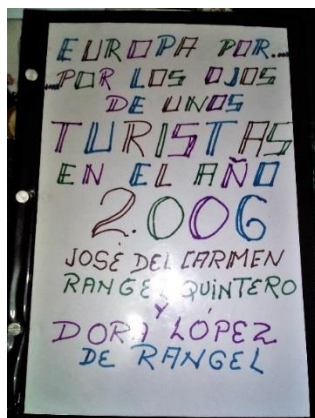 EUROPA POR....
...POR LOS OJOS
DE UNOS
TURISTAS
EN EL AÑO
2.006
JOSÉ DEL CARMEN
RANGEL QUINTERO
Y
DORA LÓPEZ
DE RANGEL